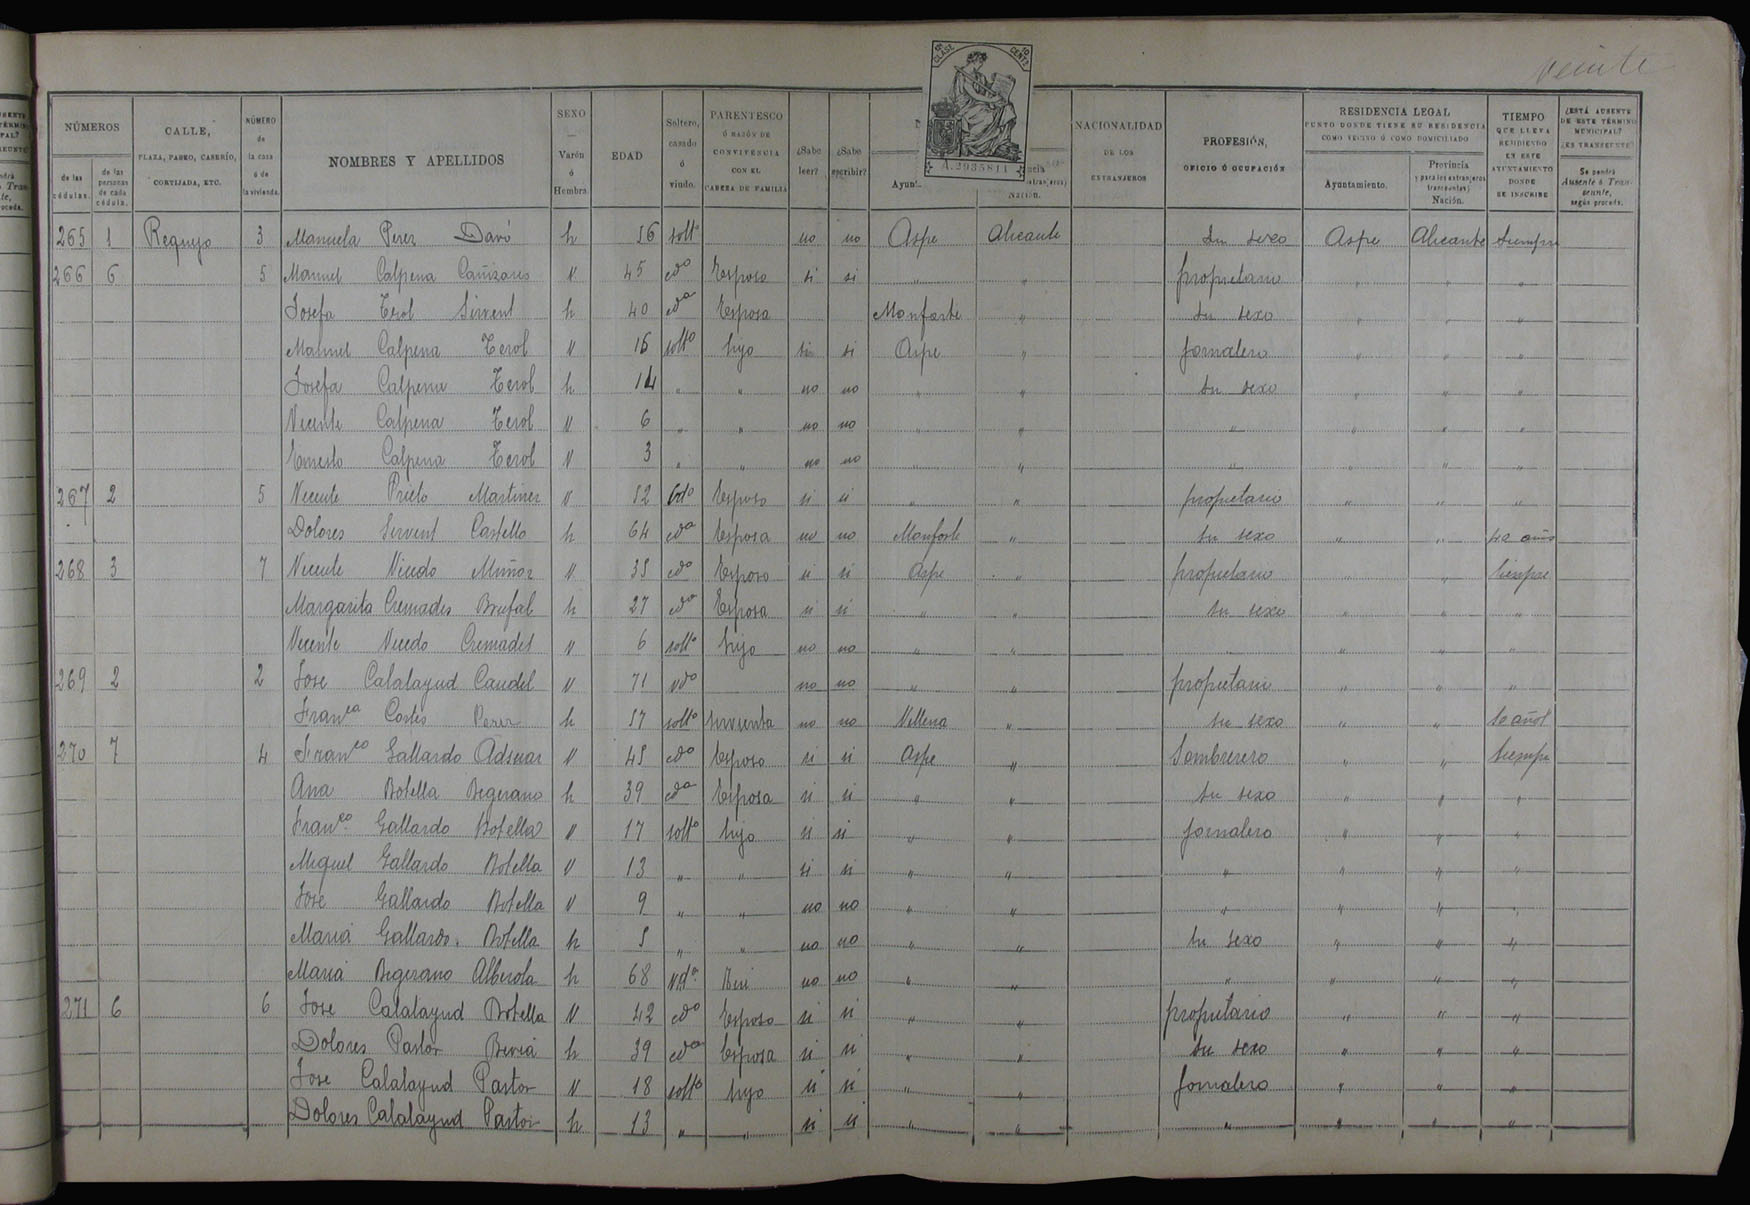 veinte
12ª CLASE 10 CENTS
A.2935811
NÚMEROS
de las cédulas.
de las personas de cada cédula.
CALLE, PLAZA, PASEO, CASERÍO, CORTIJADA, ETC.
NÚMERO de la casa ó de la vivienda.
NOMBRES Y APELLIDOS
SEXO — Varón ó Hembra
EDAD
Soltero, casado ó viudo.
PARENTESCO Ó RAZÓN DE CONVIVENCIA CON EL CABEZA DE FAMILIA
¿Sabe leer?
¿Sabe escribir?
Ayunt.
Nación.
NACIONALIDAD DE LOS EXTRANJEROS
PROFESIÓN, OFICIO Ó OCUPACIÓN
RESIDENCIA LEGAL PUNTO DONDE TIENE SU RESIDENCIA COMO VECINO Ó COMO DOMICILIADO
Ayuntamiento.
Provincia y para los extranjeros transeuntes) Nación.
TIEMPO QUE LLEVA RESIDIENDO EN ESTE AYUNTAMIENTO DONDE SE INSCRIBE
¿ESTÁ AUSENTE DE ESTE TÉRMINO MUNICIPAL? ¿ES TRANSEUNTE?
Se pondrá Ausente ó Transeunte, según proceda.
265 1 Requejo 3 Manuela Perez Davó h 56 soltª no no Aspe Alicante Su sexo Aspe Alicante Siempre
266 6 5 Manuel Calpena Cañizares V 45 cdo Esposo si si " " propietario " " "
Josefa Terol Sirvent h 40 cda Esposa Monforte " Su sexo " " "
Manuel Calpena Terol V 16 solto hijo si si Aspe " jornalero " " "
Josefa Calpena Terol h 14 " " no no " " Su sexo " " "
Vicente Calpena Terol V 6 " " no no " " " " " "
Ernesto Calpena Terol V 3 " " no no " " " " " "
267 2 5 Vicente Prieto Martinez V 52 Cdo Esposo si si " " propietario " " "
Dolores Sirvent Castello h 64 cda Esposa no no Monforte " Su sexo " " años
268 3 7 Vicente Vicedo Muñoz V 35 cdo Esposo si si Aspe " propietario " " Siempre
Margarita Cremades Brufal h 27 cda Esposa si si " " Su sexo " " "
Vicente Vicedo Cremades V 6 solto hijo no no " " " " "
269 2 2 Jose Calatayud Caudel V 71 vdo no no " " propietario " " "
Franca Cortés Perez h 57 solta sirvienta no no Villena " Su sexo " " 10 años
270 7 4 Franco Gallardo Adsuar V 45 cdo Esposo si si Aspe " Sombrerero " " Siempre
Ana Botella Begerano h 39 cda Esposa si si " " Su sexo " " "
Franco Gallardo Botella V 17 solto hijo si si " " jornalero " " "
Miguel Gallardo Botella V 13 " " si si " " " " " "
Jose Gallardo Botella V 9 " " no no " " " " " "
Maria Gallardo Botella h 5 " " no no " " Su sexo " " "
Maria Begerano Alberola h 68 vda no no " " " " " "
271 6 6 Jose Calatayud Botella V 42 cdo Esposo si si " " propietario " " "
Dolores Pastor Beviá h 39 cda Esposa si si " " Su sexo " " "
Jose Calatayud Pastor V 18 solto hijo si si " " Jornalero " " "
Dolores Calatayud Pastor h 13 " " si si " " " " " "